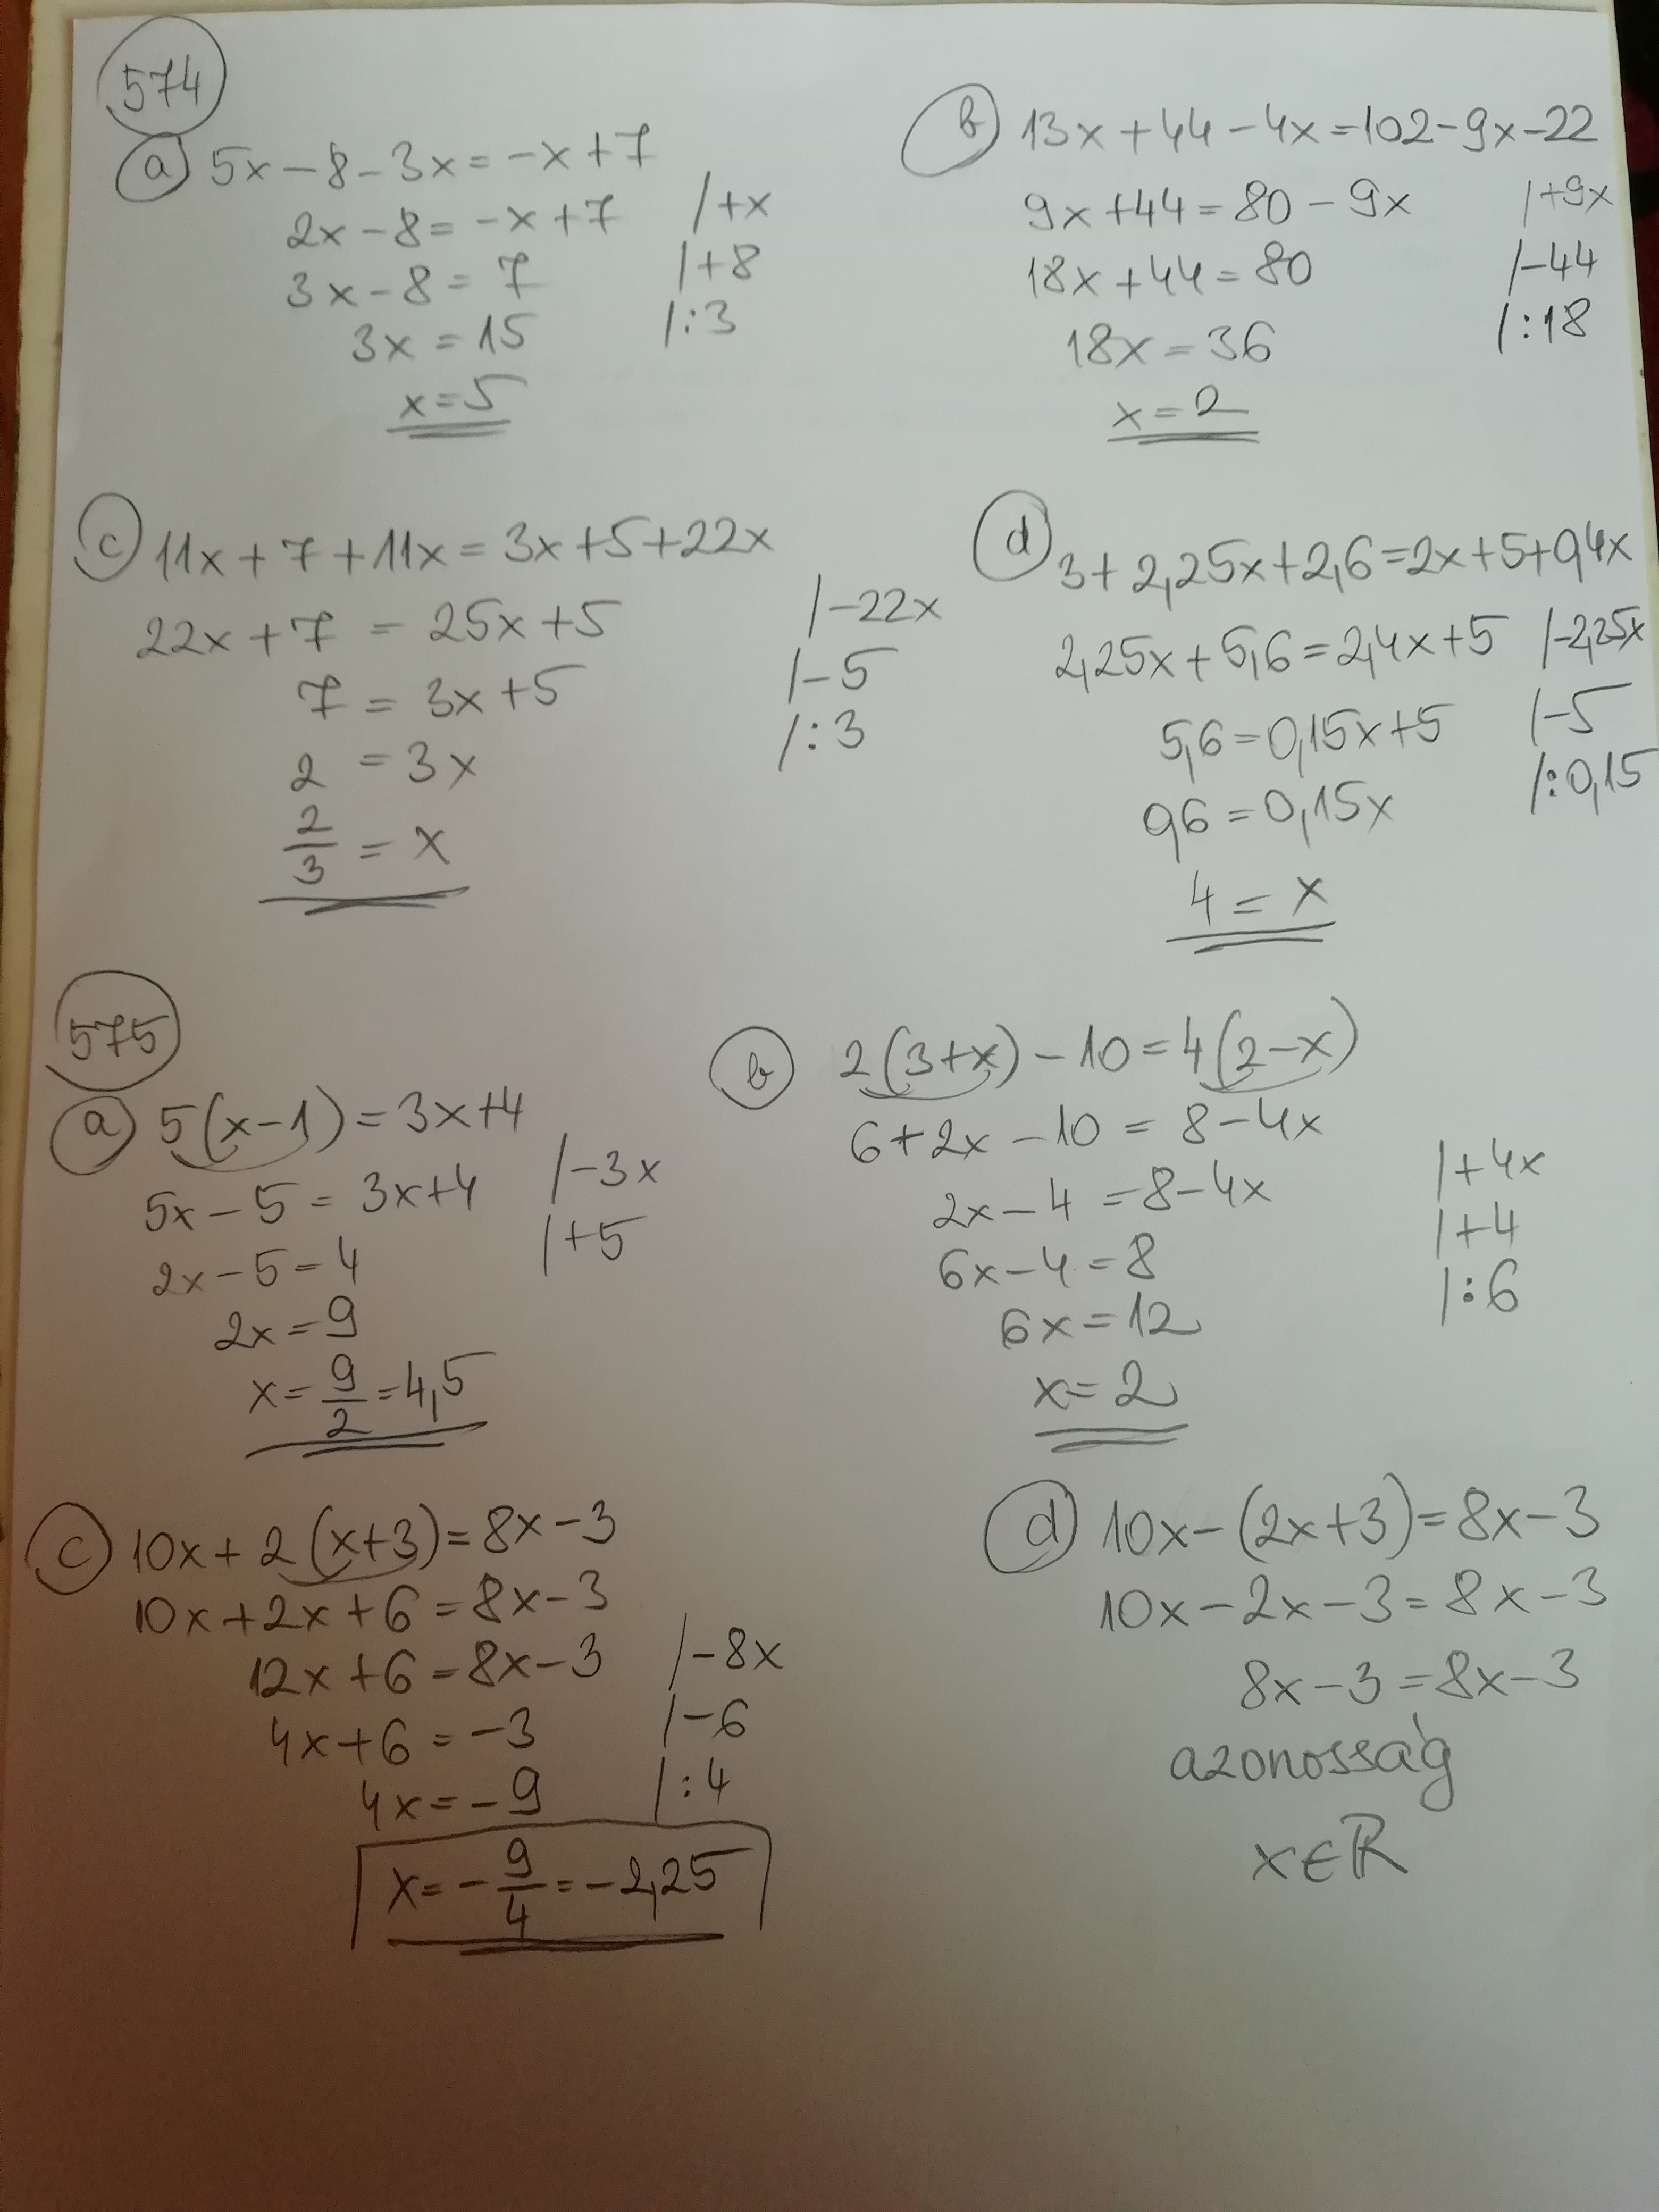 574
a) 5x-8-3x=-x+7
2x-8=-x+7 /+x
3x-8=7 /+8
3x=15 /:3
x=5
b) 13x+44-4x=102-9x-22
9x+44=80-9x /+9x
18x+44=80 /-44
18x=36 /:18
x=2
c) 11x+7+11x=3x+5+22x
22x+7=25x+5 /-22x
7=3x+5 /-5
2=3x /:3
2/3=x
d) 3+2,25x+2,6=2x+5+0,4x
2,25x+5,6=2,4x+5 /-2,25x
5,6=0,15x+5 /-5
0,6=0,15x /:0,15
4=x
575
a) 5(x-1)=3x+4
5x-5=3x+4 /-3x
2x-5=4 /+5
2x=9
x=9/2=4,5
b) 2(3+x)-10=4(2-x)
6+2x-10=8-4x
2x-4=8-4x /+4x
6x-4=8 /+4
6x=12 /:6
x=2
c) 10x+2(x+3)=8x-3
10x+2x+6=8x-3
12x+6=8x-3 /-8x
4x+6=-3 /-6
4x=-9 /:4
x=-9/4=-2,25
d) 10x-(2x+3)=8x-3
10x-2x-3=8x-3
8x-3=8x-3
azonosság
x∈ℝ